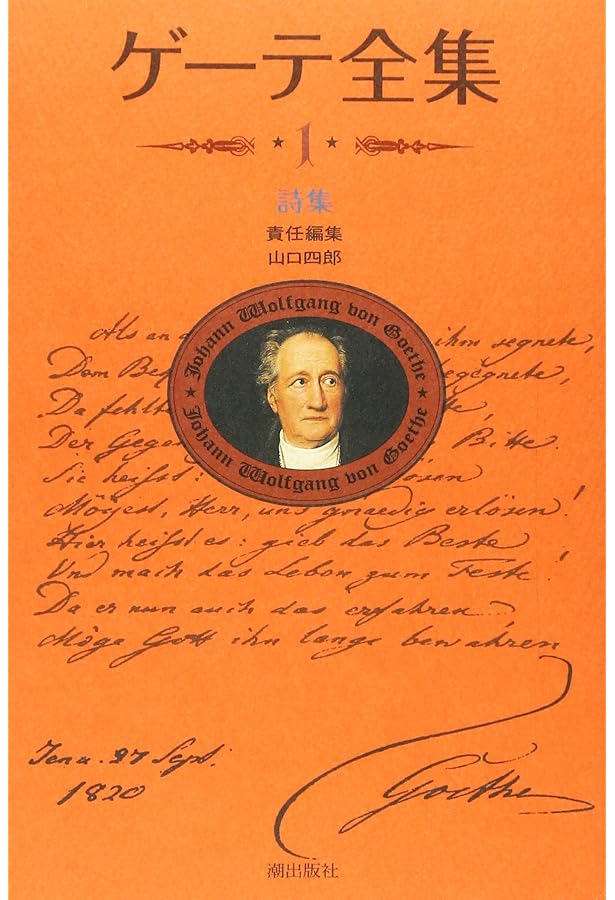 ゲーテ全集
1
詩集
責任編集
山口四郎
Johann Wolfgang von Goethe
Johann Wolfgang von Goethe
Als an ihm segnete,
Dem
Da fehlte
Der Bitte.
Sie heisst:
Mögest, Herr, uns gnaedig erlösen!
Hier heisst es: gieb das Beste
Uns mach das Leben zum Feste!
Da er nun auch das erfahren
Möge Gott ihn lange bewahren
Jena. 27 Sept.
1820
Goethe
潮出版社